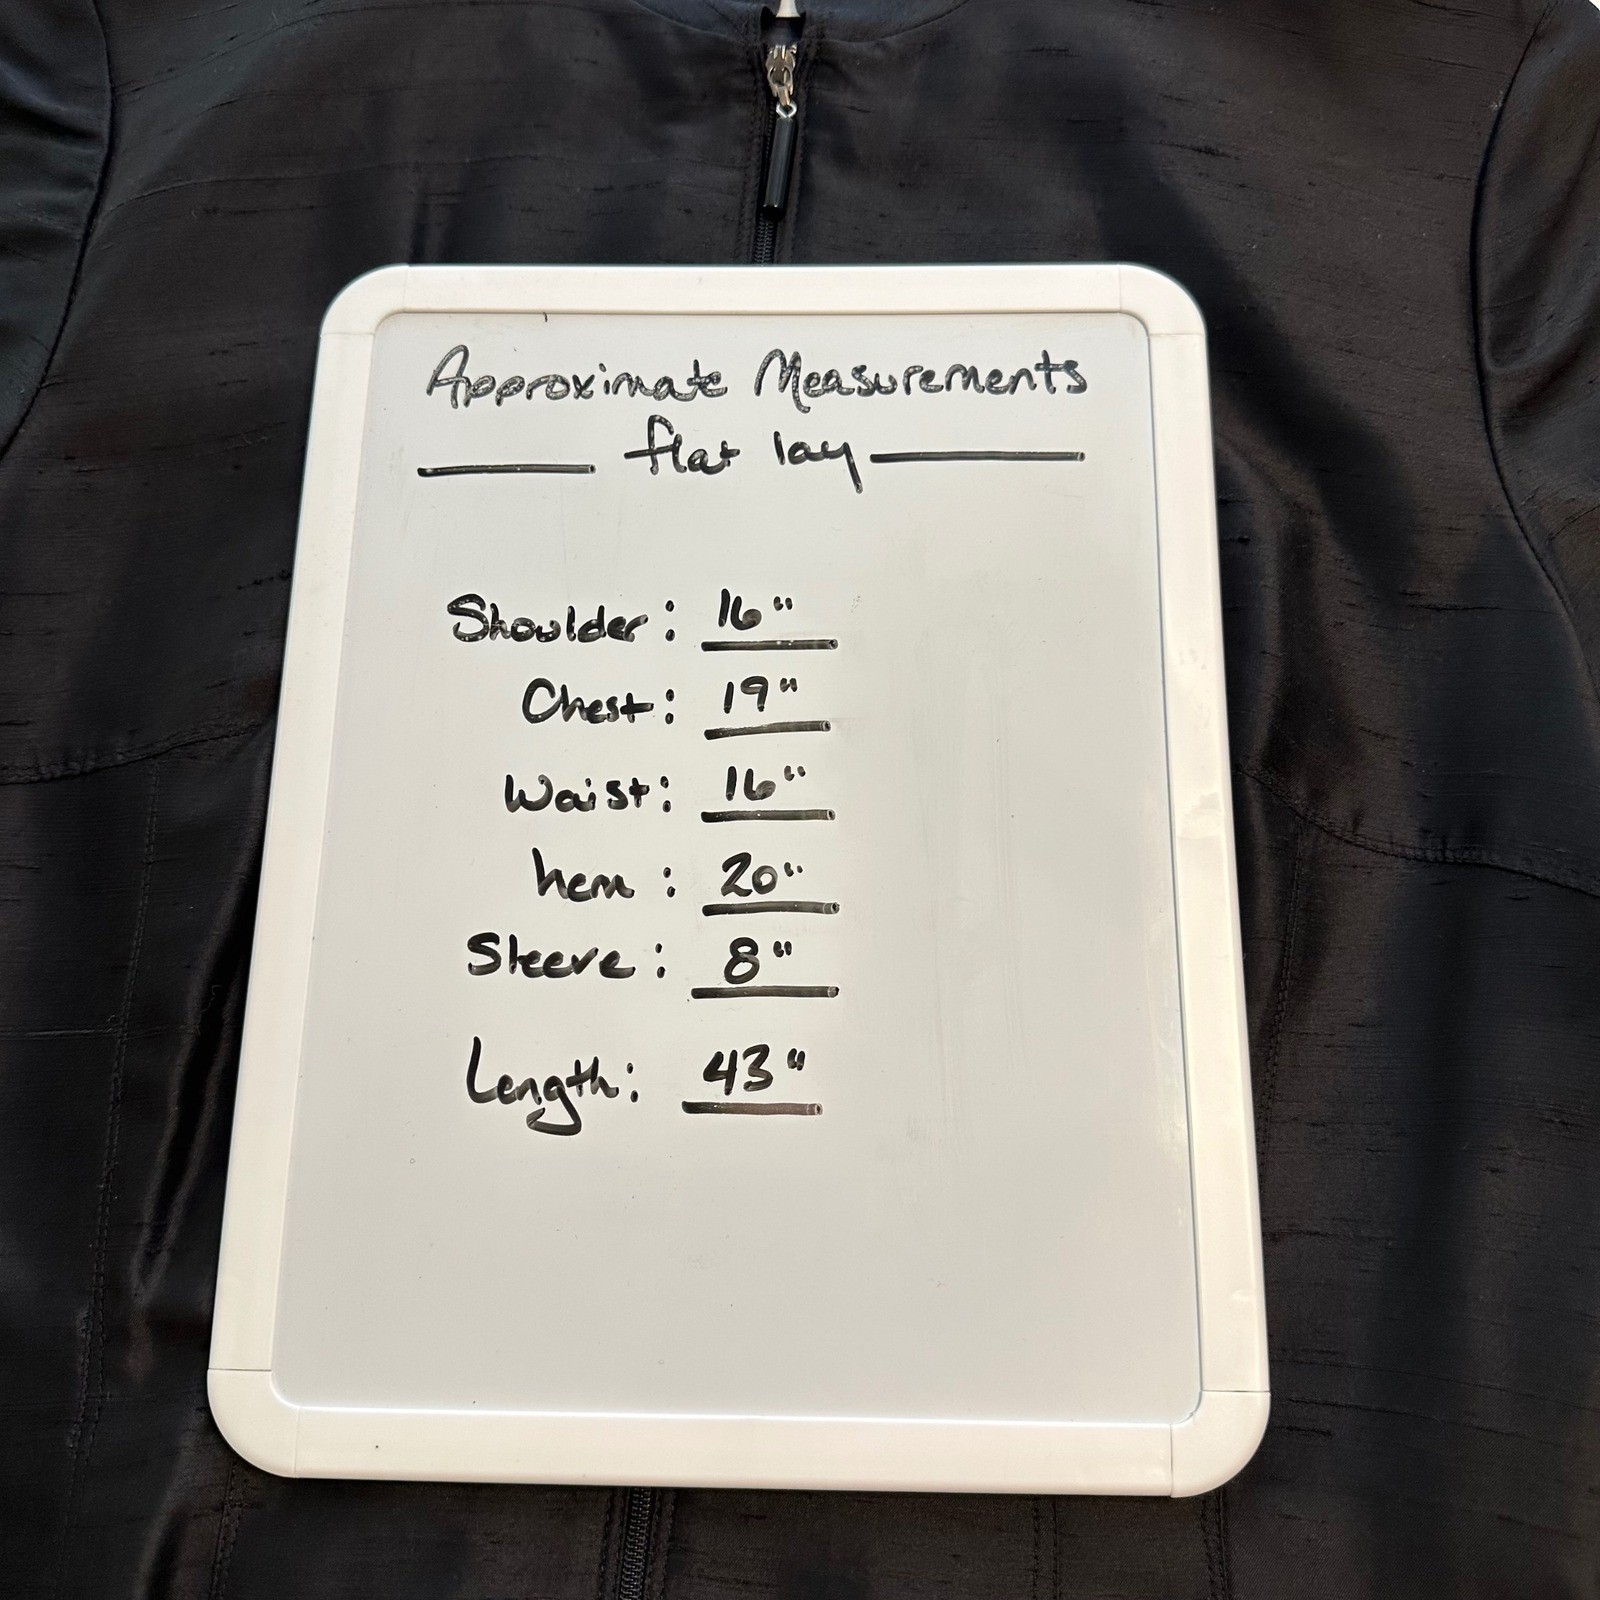 Approximate Measurements
flat lay
Shoulder: 16"
Chest: 19"
Waist: 16"
hem: 20"
Sleeve: 8"
Length: 43"